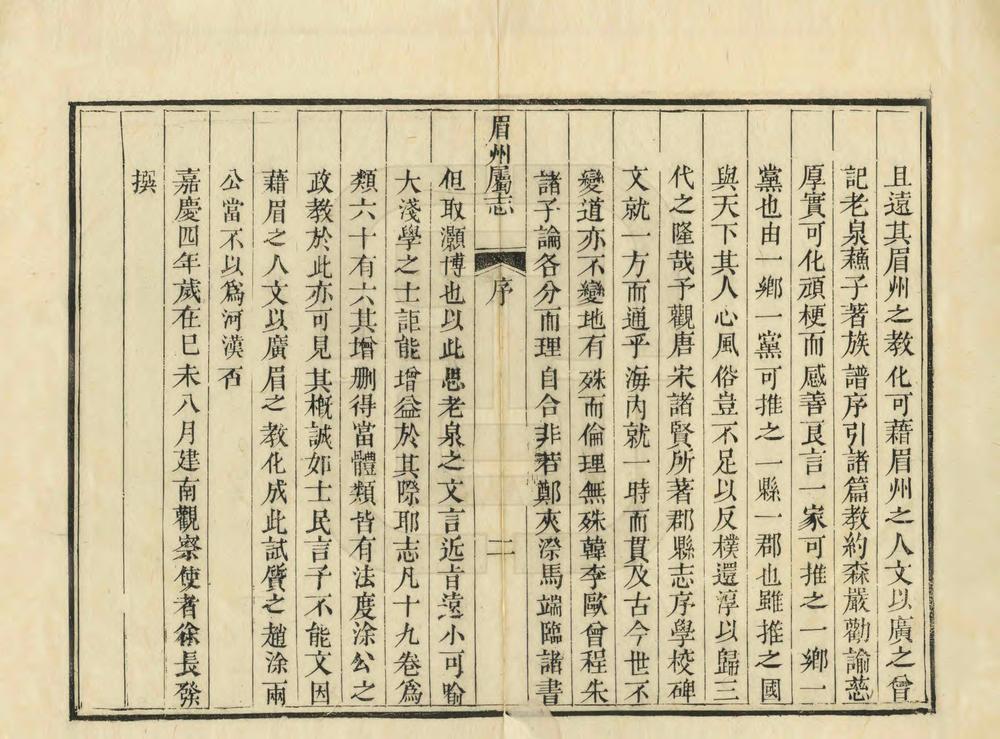 且遠其眉州之教化可藉眉州之人文以廣之曾
記老泉蘓子著族譜序引諸篇教約森嚴勸諭慈
厚實可化頑梗而感善良言一家可推之一鄉一
黨也由一鄉一黨可推之一縣一郡也雖推之國
與天下其人心風俗豈不足以反樸還淳以歸三
代之隆哉予觀唐宋諸賢所著郡縣志序學校碑
文就一方而通乎海内就一時而貫及古今世不
變道亦不變地有殊而倫理無殊韓李歐曾程朱
諸子論各分而理自合非若鄭夾漈馬端臨諸書
眉州屬志 序 二
但取灝博也以此思老泉之文言近㫖遠小可喻
大淺學之士詎能增益於其際耶志凡十九卷爲
類六十有六其增删得當體類皆有法度涂公之
政教於此亦可見其概誠如士民言予不能文因
藉眉之人文以廣眉之教化成此試質之趙涂兩
公當不以爲河漢否
嘉慶四年歲在巳未八月建南觀察使者徐長發
撰